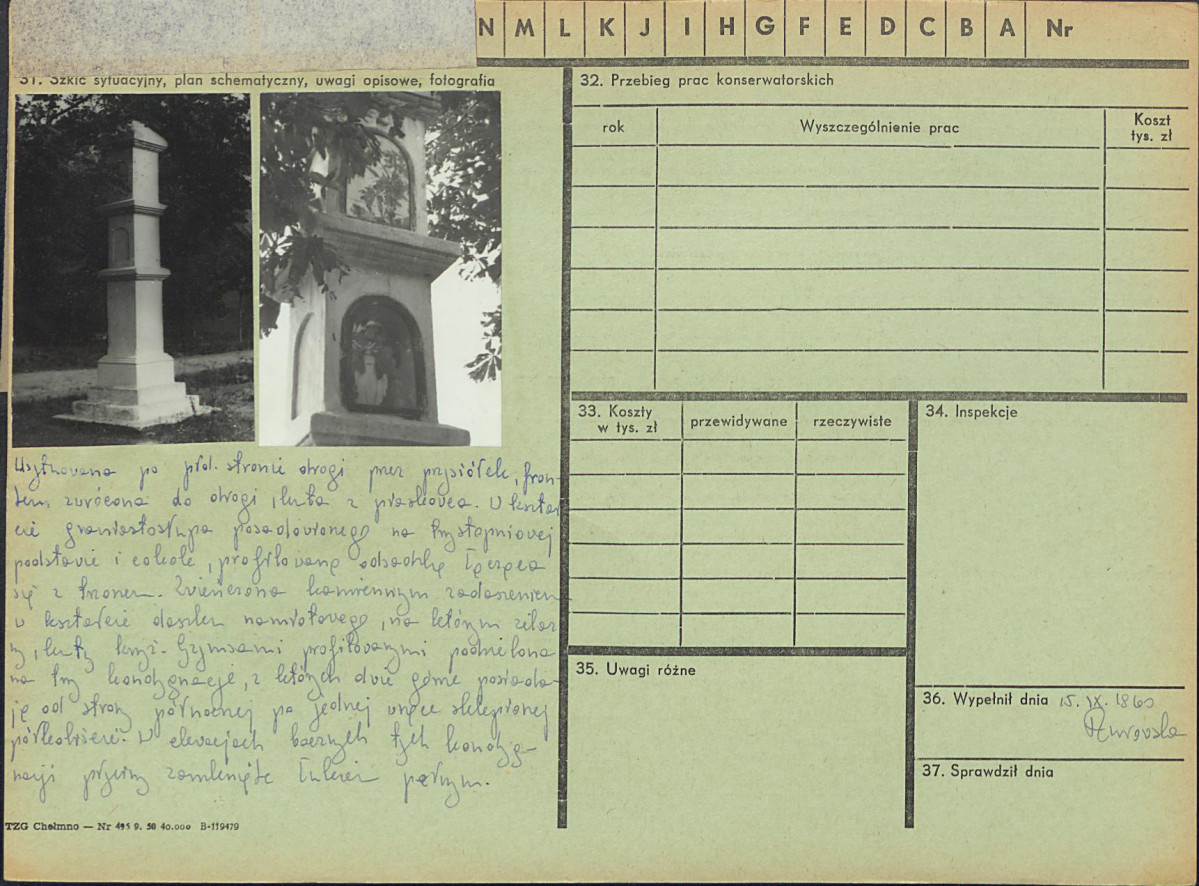 N M L K J I H G F E D C B A Nr
31. Szkic sytuacyjny, plan schematyczny, uwagi opisowe, fotografia
Usytuowana po płd. stronie drogi przez przysiółek, fron-
tem zwrócona do drogi, kuta z piaskowca. W kształ
cie graniastosłupa posadowionego na trzystopniowej
podstawie i cokole, profilowaną odsadzką łącząca
się z trzonem. Zwieńczona kamiennym zadaszeniem
w kształcie daszku namiotowego, na którym żelaz
ny, kuty krzyż. Gzymsami profilowanymi podzielona
na trzy kondygnacje, z których dwie górne posiada-
ją od strony północnej po jednej wnęce sklepionej
półkoliście. W elewacjach bocznych tych kondyg-
nacji płyciny zamknięte łukiem pełnym.
TZG Chełmno — Nr 495 9. 58 40.000 B-119479
32. Przebieg prac konserwatorskich
rok
Wyszczególnienie prac
Koszt
tys. zł
33. Koszty
w tys. zł
przewidywane
rzeczywiste
34. Inspekcje
35. Uwagi różne
36. Wypełnił dnia 15. IX. 1960
37. Sprawdził dnia